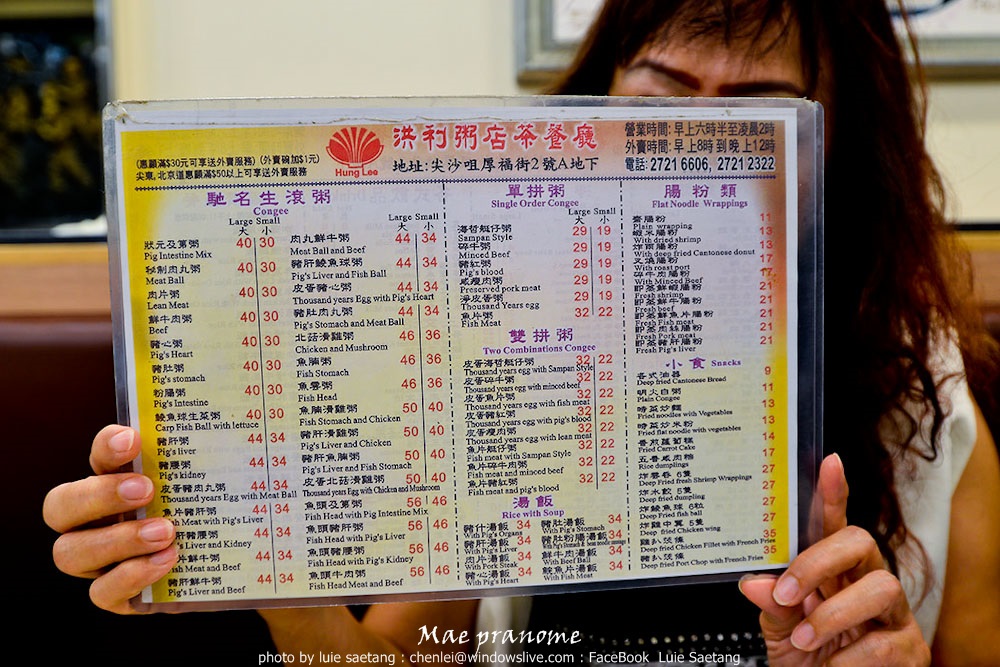 (惠顧滿$30元可享送外賣服務) (外賣碗加$1元)
尖東, 北京道惠顧滿$50以上可享送外賣服務
Hung Lee
洪利粥店茶餐廳
地址: 尖沙咀厚福街2號A地下
營業時間: 早上六時半至凌晨2時
外賣時間: 早上8時到晚上12時
電話: 2721 6606, 2721 2322
馳名生滾粥
Congee
Large Small
大 小
狀元及第粥 40 30
Pig Intestine Mix
秘制肉丸粥 40 30
Meat Ball
肉片粥 40 30
Lean Meat
鮮牛肉粥 40 30
Beef
豬心粥 40 30
Pig's Heart
豬肚粥 40 30
Pig's stomach
粉腸粥 40 30
Pig's Intestine
鯪魚球生菜粥 40 30
Carp Fish Ball with lettuce
豬肝粥 44 34
Pig's liver
豬腰粥 44 34
Pig's kidney
皮蛋豬肉丸粥 44 34
Thousand years Egg with Meat Ball
魚片豬肝粥 44 34
Meat with Pig's Liver
肝豬腰粥 44 34
's Liver and Kidney
片鮮牛粥 44 34
Meat and Beef
豬肝鮮牛粥 44 34
Pig's Liver and Beef
Large Small
大 小
肉丸鮮牛粥 44 34
Meat Ball and Beef
豬肝鯪魚球粥 44 34
Pig's Liver and Fish Ball
皮蛋豬心粥 44 34
Thousand years Egg with Pig's Heart
豬肚肉丸粥 44 34
Pig's Stomach and Meat Ball
北菇滑雞粥 46 36
Chicken and Mushroom
魚腩粥 46 36
Fish Stomach
魚雲粥 46 36
Fish Head
魚腩滑雞粥 50 40
Fish Stomach and Chicken
豬肝滑雞粥 50 40
Pig's Liver and Chicken
豬肝魚腩粥 50 40
Pig's Liver and Fish Stomach
皮蛋北菇滑雞粥 50 40
Thousand years Egg with Chicken and Mushroom
魚頭及第粥 56 46
Fish Head with Pig Intestine Mix
魚頭豬肝粥 56 46
Fish Head with Pig's Liver
魚頭豬腰粥 56 46
Fish Head with Pig's Kidney
魚頭牛肉粥 56 46
Fish Head Meat and Beef
單拼粥
Single Order Congee
Large Small
大 小
海哲艇仔粥 29 19
Sampan Style
碎牛粥 29 19
Minced Beef
豬紅粥 29 19
Pig's blood
咸瘦肉粥 29 19
Preserved pork meat
淨皮蛋粥 29 19
Thousand Years egg
魚片粥 32 22
Fish Meat
雙拼粥
Two Combinations Congee
皮蛋海哲艇仔粥 32 22
Thousand years egg with Sampan Style
皮蛋碎牛粥 32 22
Thousand years egg with minced beef
皮蛋魚片粥 32 22
Thousand years egg with fish meat
皮蛋豬紅粥 32 22
Thousand years egg with pig's blood
皮蛋瘦肉粥 32 22
Thousand years egg with lean meat
魚片艇仔粥 32 22
Fish meat with Sampan Style
魚片碎牛粥 32 22
Fish meat and minced beef
魚片豬紅粥 32 22
Fish meat and pig's blood
湯飯
Rice with Soup
豬什湯飯 34
With Pig's Organs
豬肝湯飯 34
With Pig's Liver
肉片湯飯 34
With Pork Steak
豬心湯飯 34
With Pig's Heart
豬肚湯飯 34
With Pig's Stomach
豬肚粉腸湯飯 34
鮮牛肉湯飯 34
With Beef Ball
鯇魚片湯飯 34
With Fish Meat
腸粉類
Flat Noodle Wrappings
齋腸粉 11
Plain wrapping
蝦米腸粉 13
With dried shrimp
炸雨腸粉 13
With deep fried Cantonese donut
叉燒腸粉 17
With roast port
碎牛肉腸粉 17
With Minced Beef
即蒸鮮蝦腸粉 21
Fresh shrimp
即蒸鮮牛腸粉 21
Fresh beef
即蒸鮮魚片腸粉 21
Fresh Fish meat
即蒸肉絲腸粉 21
Fresh Pork meat
即蒸豬肝腸粉 21
Fresh Pig's liver
小食 Snacks
各式油器 9
Deep fried Cantonese Bread
明火白粥 11
Plain Congee
時菜炒麵 13
Fried noodles with Vegetables
時菜炒米粉 13
Fried flat noodle with vegetables
香煎蘿蔔糕 14
Fried Carrot Cake
五香咸肉糭 17
Rice dumplings
炸雲吞 6隻 27
Deep Fried fresh Shrimp Wrappings
炸水餃 5隻 27
Deep fried dumpling
炸鯪魚球 6粒 27
Deep Fried fish ball
炸雞中翼 5隻 27
Deep fried Chicken wing
雞扒茨條 35
Deep fried Chicken Fillet with French Fries
豬扒茨條 35
Deep fried Port Chop with French Fries
Mae pranome
photo by luie saetang : chenlei@windowslive.com : FaceBook Luie Saetang